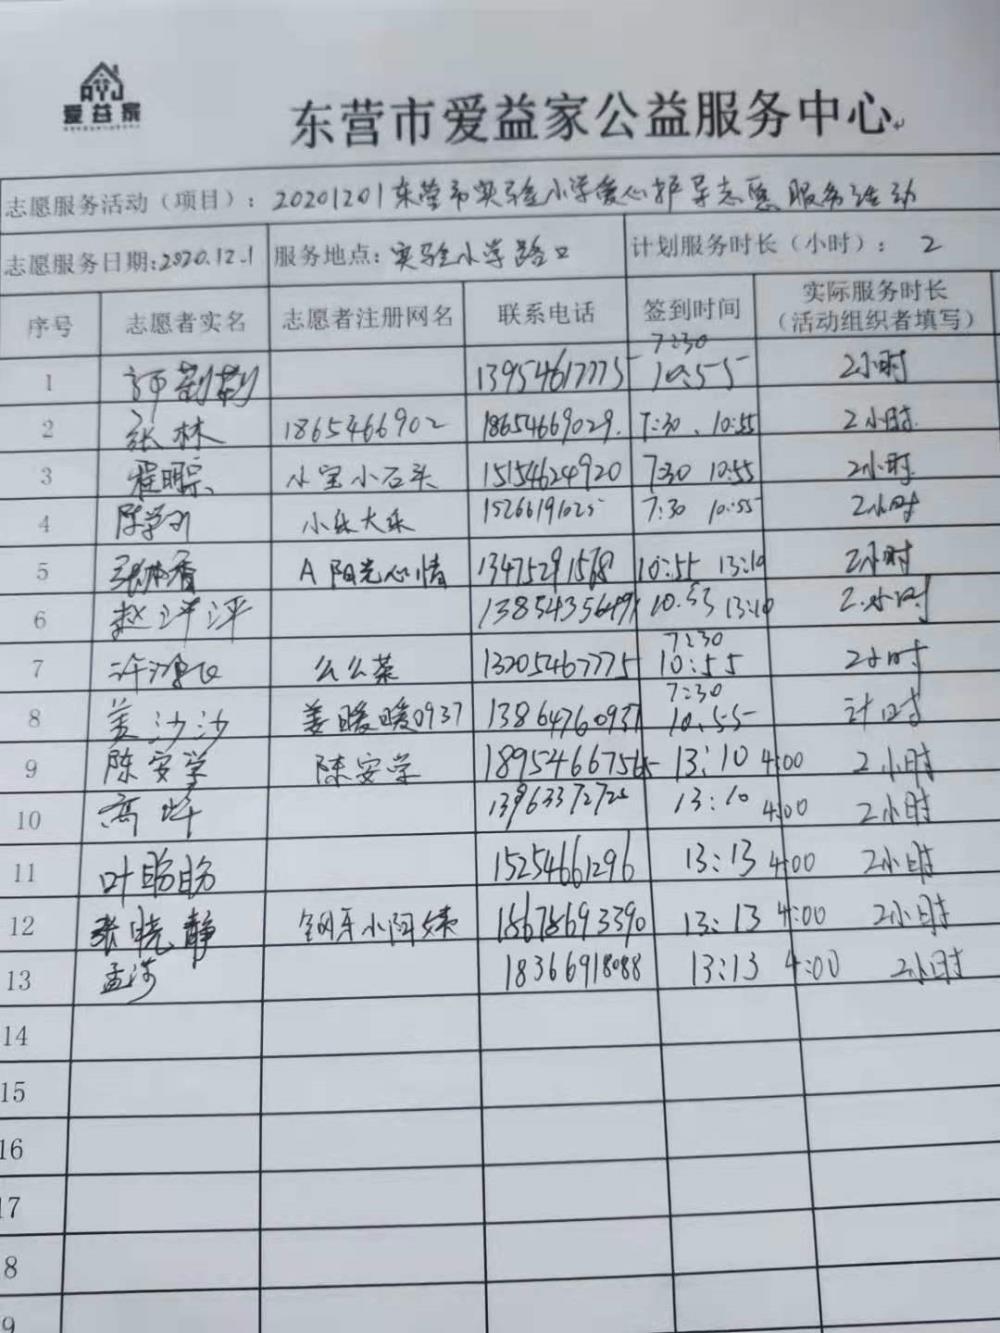 爱益家
东营市爱益家公益服务中心
志愿服务活动（项目）：20201201东营市实验小学爱心护导志愿服务活动
志愿服务日期:2020.12.1 服务地点:实验小学路口 计划服务时长（小时）：2
序号 志愿者实名 志愿者注册网名 联系电话 签到时间 实际服务时长（活动组织者填写）
1 13954617775 7:30 10:55 2小时
2 张林 1865466902 18654669029. 7:30、10:55 2小时.
3 小宝小石头 15154624920 7:30 10:55 2小时
4 小乐大乐 7:30 10:55 2小时
5 A阳光心情 10:55 13:10 2小时
6 赵萍萍 10.55 13:10 2.小时
7 么么菜 13205467775 7:30 10:55 2小时
8 姜沙沙 姜暖暖0937 13864760937 7:30 10.55 计时
9 陈安学 陈安学 13:10 4:00 2小时
10 高 13963372725 13:10 4:00 2小时
11 叶盼盼 15254661296 13:13 4:00 2小时
12 张晓静 钢牙小阳 18678693390 13:13 4:00 2小时
13 孟莎 18366918088 13:13 4:00 2小时
14
15
16
17
8
9